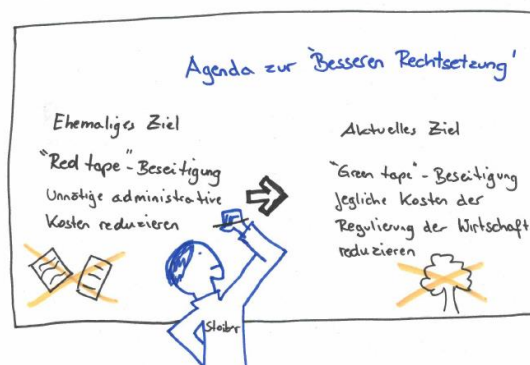 Agenda zur "Besseren Rechtsetzung"
Ehemaliges Ziel
"Red tape"-Beseitigung
Unnötige administrative
Kosten reduzieren
Aktuelles Ziel
"Green tape"-Beseitigung
Jegliche Kosten der
Regulierung der Wirtschaft
reduzieren
Stoiber